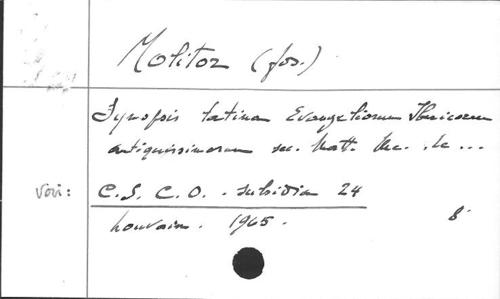 Molitor (Jos.)
Synopsis latina Evangeliorum Ibericorum
antiquissimorum sec. Matt. Mc. Lc ...
Voir : C.S.C.O. - subsidia 24
Louvain. 1965. 8°